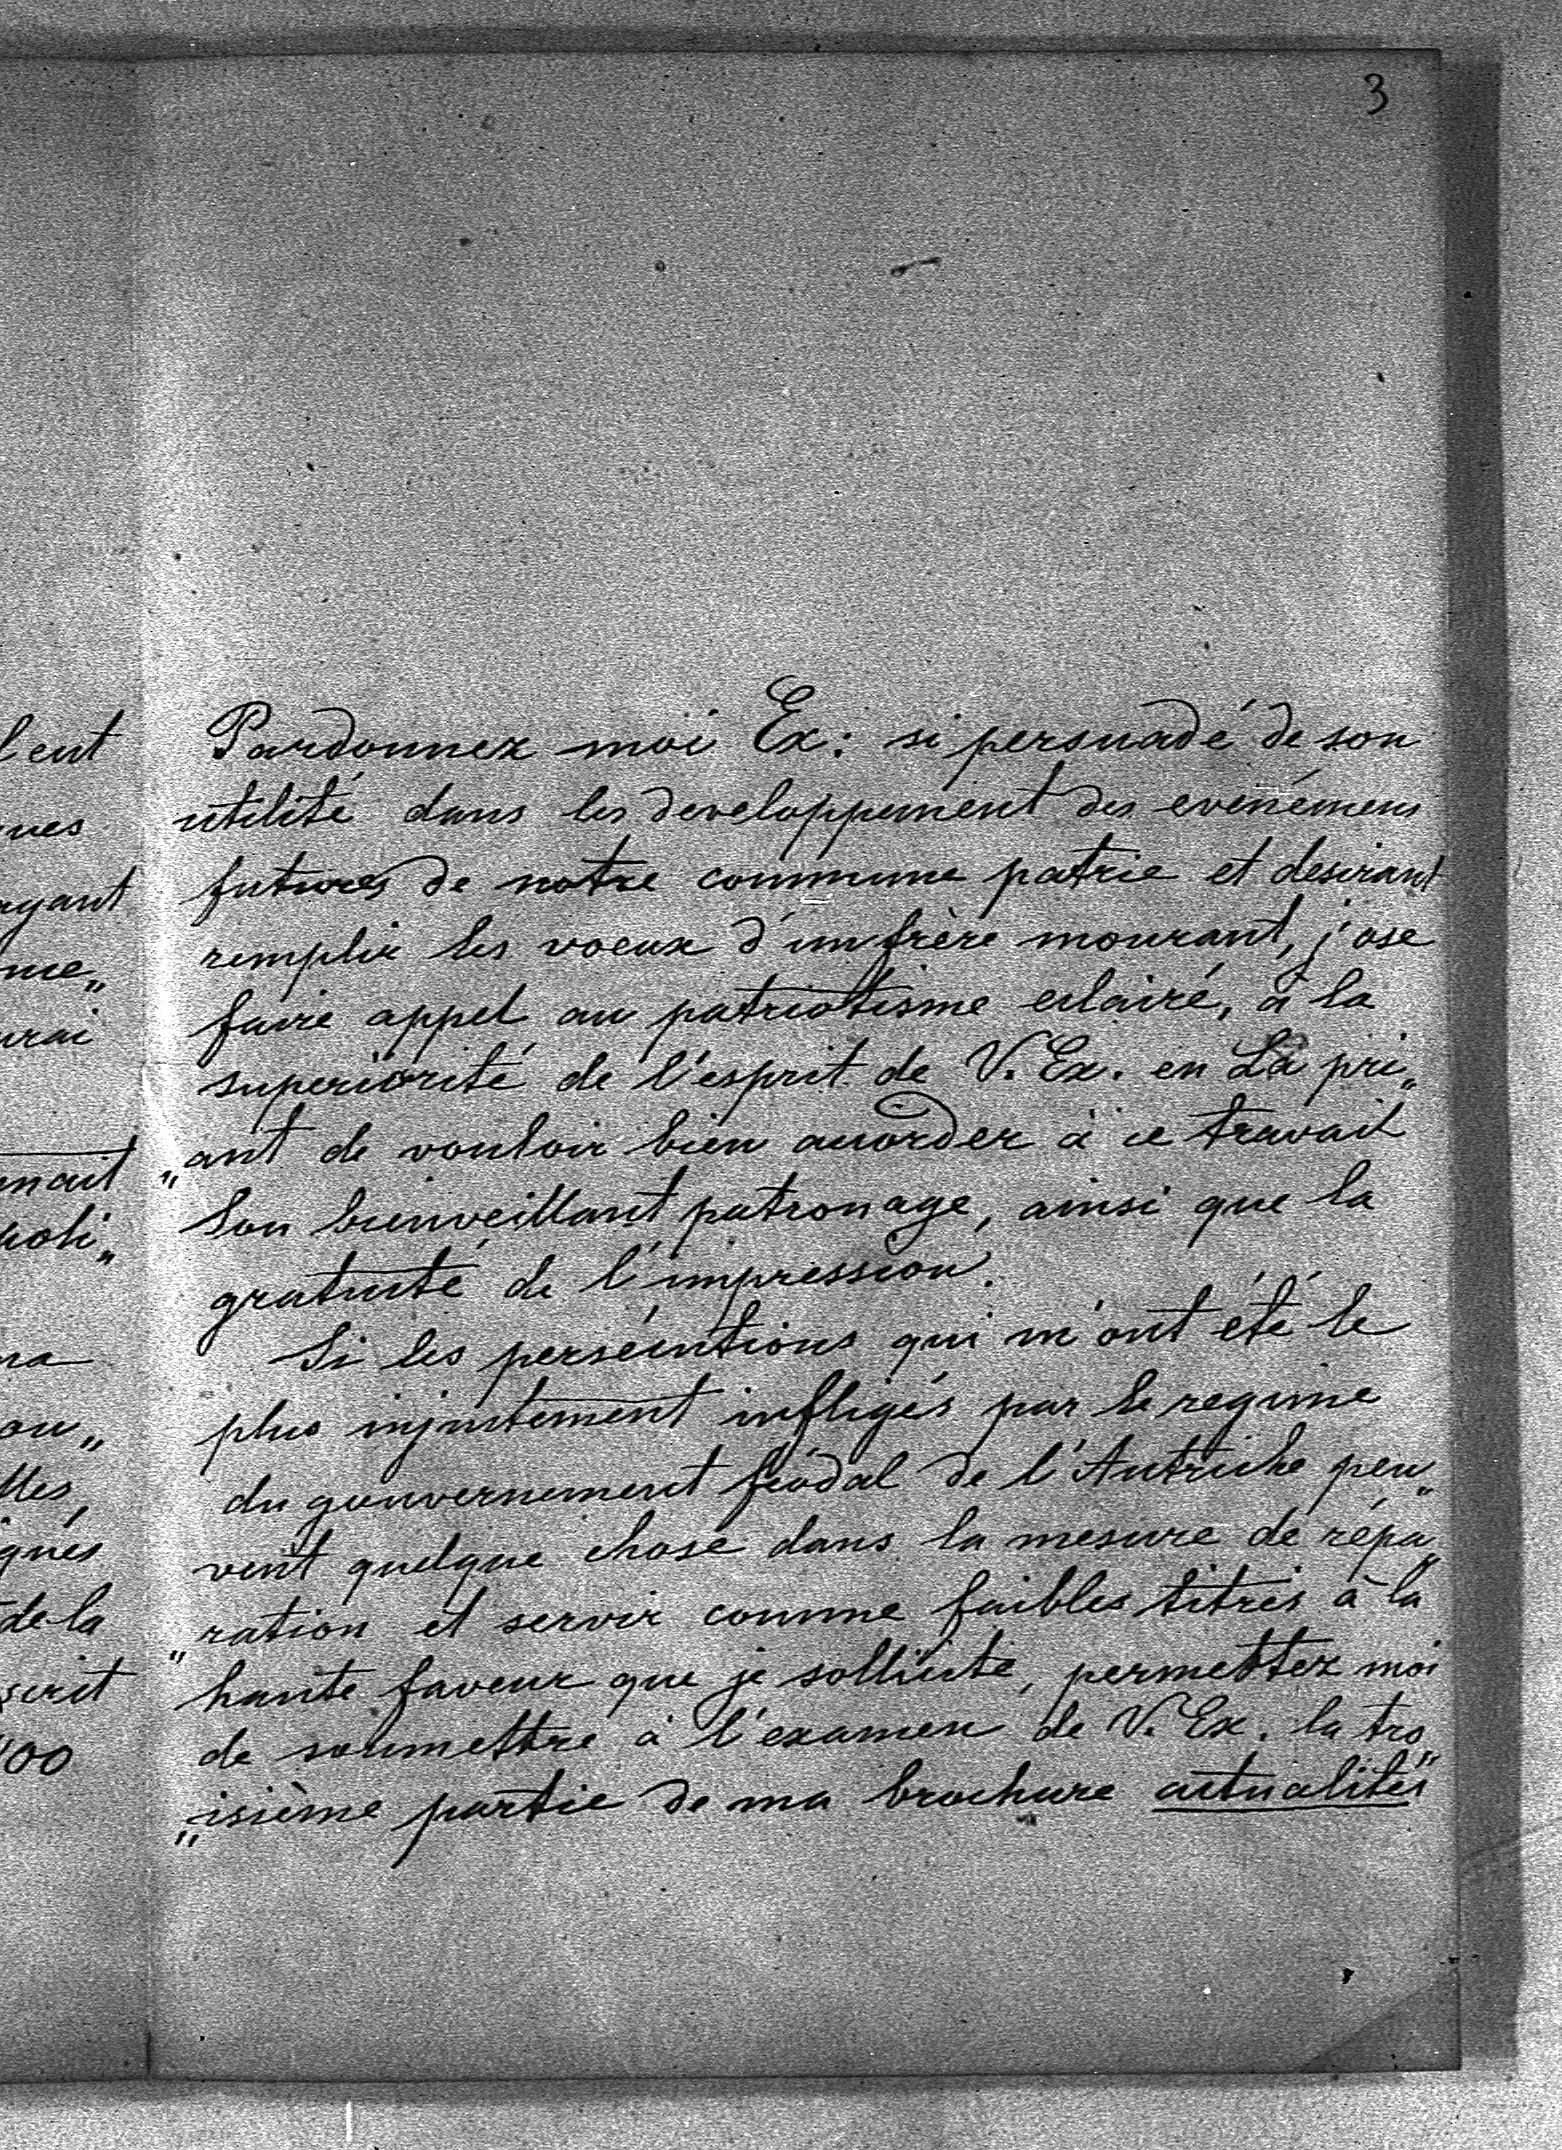 3
Pardonnez moi Ex: si persuadé de son
utilité dans les developpement des evenémens
futures de notre commune patrie et desirant
remplir les voeux d'un frère mourant, j'ose
faire appel au patriotisme eclairé, à la
superiorité de l'esprit de V. Ex. en La pri„
„ant de vouloir bien accorder à ce travail
Son bienveillant patronage, ainsi que la
gratuité de l'impression.
Si les persécutions qui m'ont été le
plus injustement infligés par le regime
du gouvernement féodal de l'Autriche peu„
vent quelque chose dans la mesure de répa„
„ration et servir comme faibles titres à la
haute faveur que je sollicite, permettez moi
de soumettre à l'examen de V. Ex. la tro„
„isième partie de ma brochure actualités